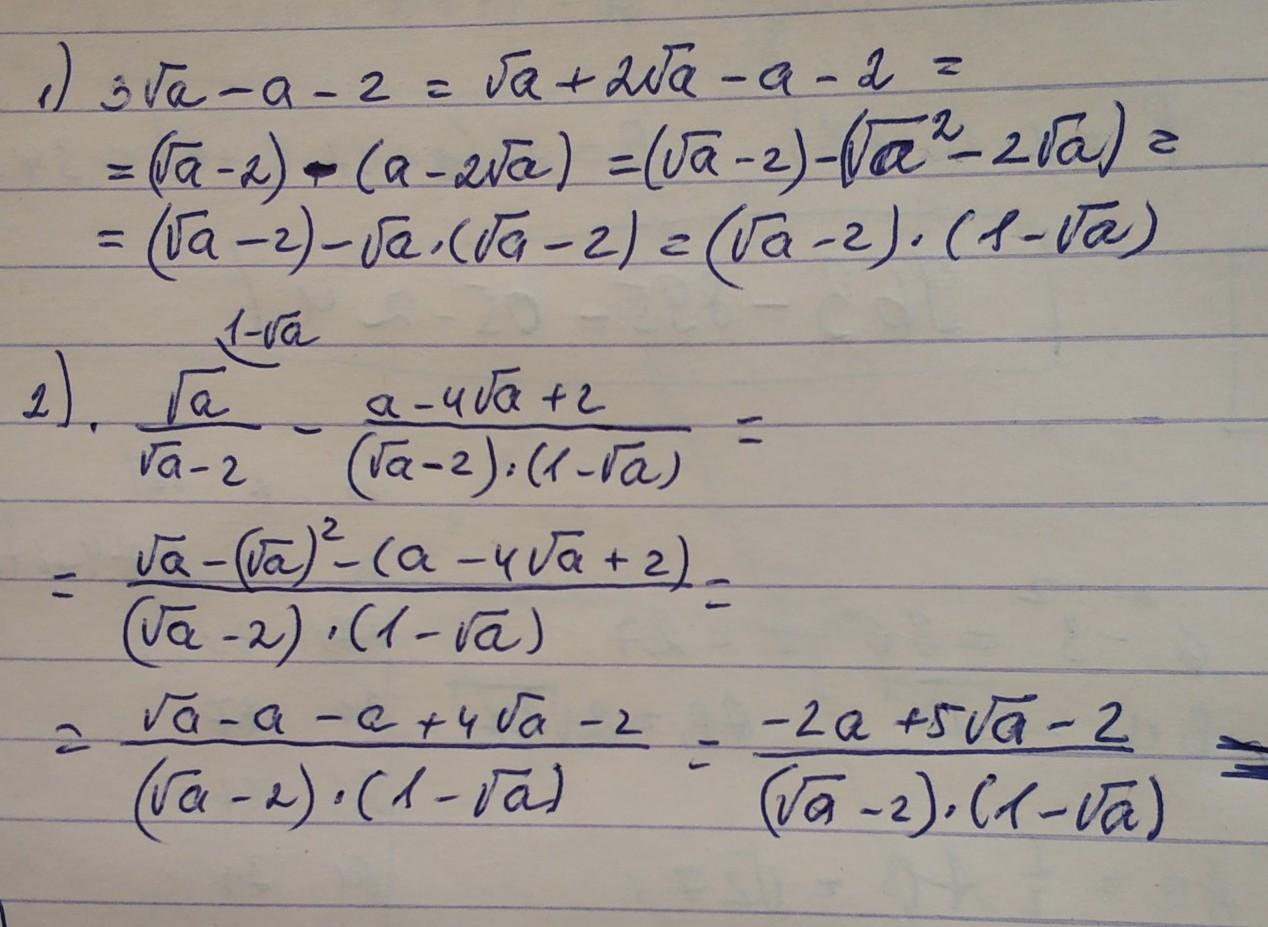 1) 3√a - a - 2 = √a + 2√a - a - 2 =
= (√a - 2) - (a - 2√a) = (√a - 2) - (√a² - 2√a) =
= (√a - 2) - √a · (√a - 2) = (√a - 2) · (1 - √a)
1-√a
2). √a / (√a - 2) - (a - 4√a + 2) / ((√a - 2) · (1 - √a)) =
= (√a - (√a)² - (a - 4√a + 2)) / ((√a - 2) · (1 - √a)) =
= (√a - a - a + 4√a - 2) / ((√a - 2) · (1 - √a)) = (-2a + 5√a - 2) / ((√a - 2) · (1 - √a)) =